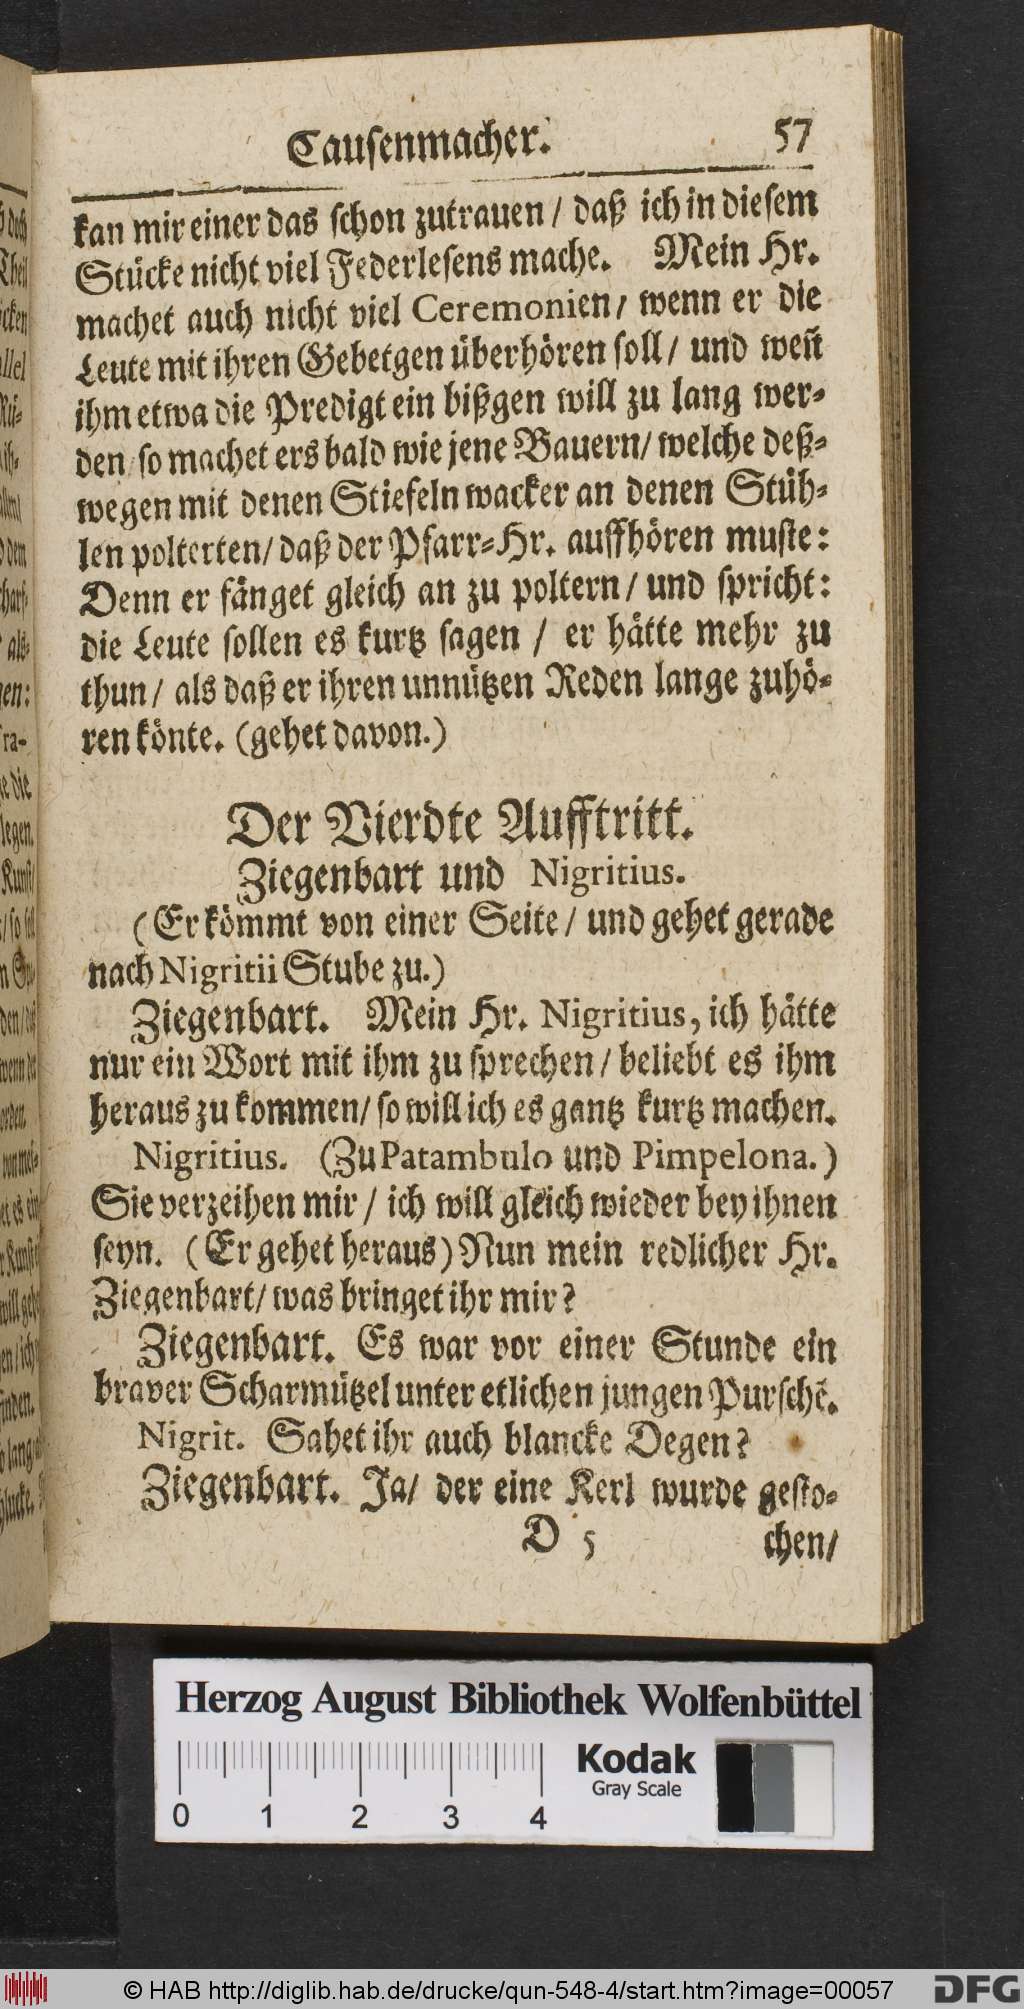 Causenmacher. 57
kan mir einer das schon zutrauen / daß ich in diesem
Stücke nicht viel Federlesens mache. Mein Hr.
machet auch nicht viel Ceremonien/ wenn er die
Leute mit ihren Gebetgen überhören soll/ und weñ
ihm etwa die Predigt ein bißgen will zu lang wer-
den/ so machet ers bald wie jene Bauern/ welche deß-
wegen mit denen Stiefeln wacker an denen Stüh-
len polterten/ daß der Pfarr-Hr. auffhören muste:
Denn er fänget gleich an zu poltern/ und spricht:
die Leute sollen es kurtz sagen / er hätte mehr zu
thun/ als daß er ihren unnützen Reden lange zuhö-
ren könte. (gehet davon.)
Der Vierdte Aufftritt.
Ziegenbart und Nigritius.
(Er kömmt von einer Seite/ und gehet gerade
nach Nigritii Stube zu.)
Ziegenbart. Mein Hr. Nigritius, ich hätte
nur ein Wort mit ihm zu sprechen/ beliebt es ihm
heraus zu kommen/ so will ich es gantz kurtz machen.
Nigritius. (Zu Patambulo und Pimpelona.)
Sie verzeihen mir/ ich will gleich wieder bey ihnen
seyn. (Er gehet heraus) Nun mein redlicher Hr.
Ziegenbart/ was bringet ihr mir?
Ziegenbart. Es war vor einer Stunde ein
braver Scharmützel unter etlichen jungen Purschē.
Nigrit. Sahet ihr auch blancke Degen?
Ziegenbart. Ja/ der eine Kerl wurde gesto-
D 5 chen/
Herzog August Bibliothek Wolfenbüttel
Kodak
Gray Scale
0 1 2 3 4
© HAB http://diglib.hab.de/drucke/qun-548-4/start.htm?image=00057
DFG